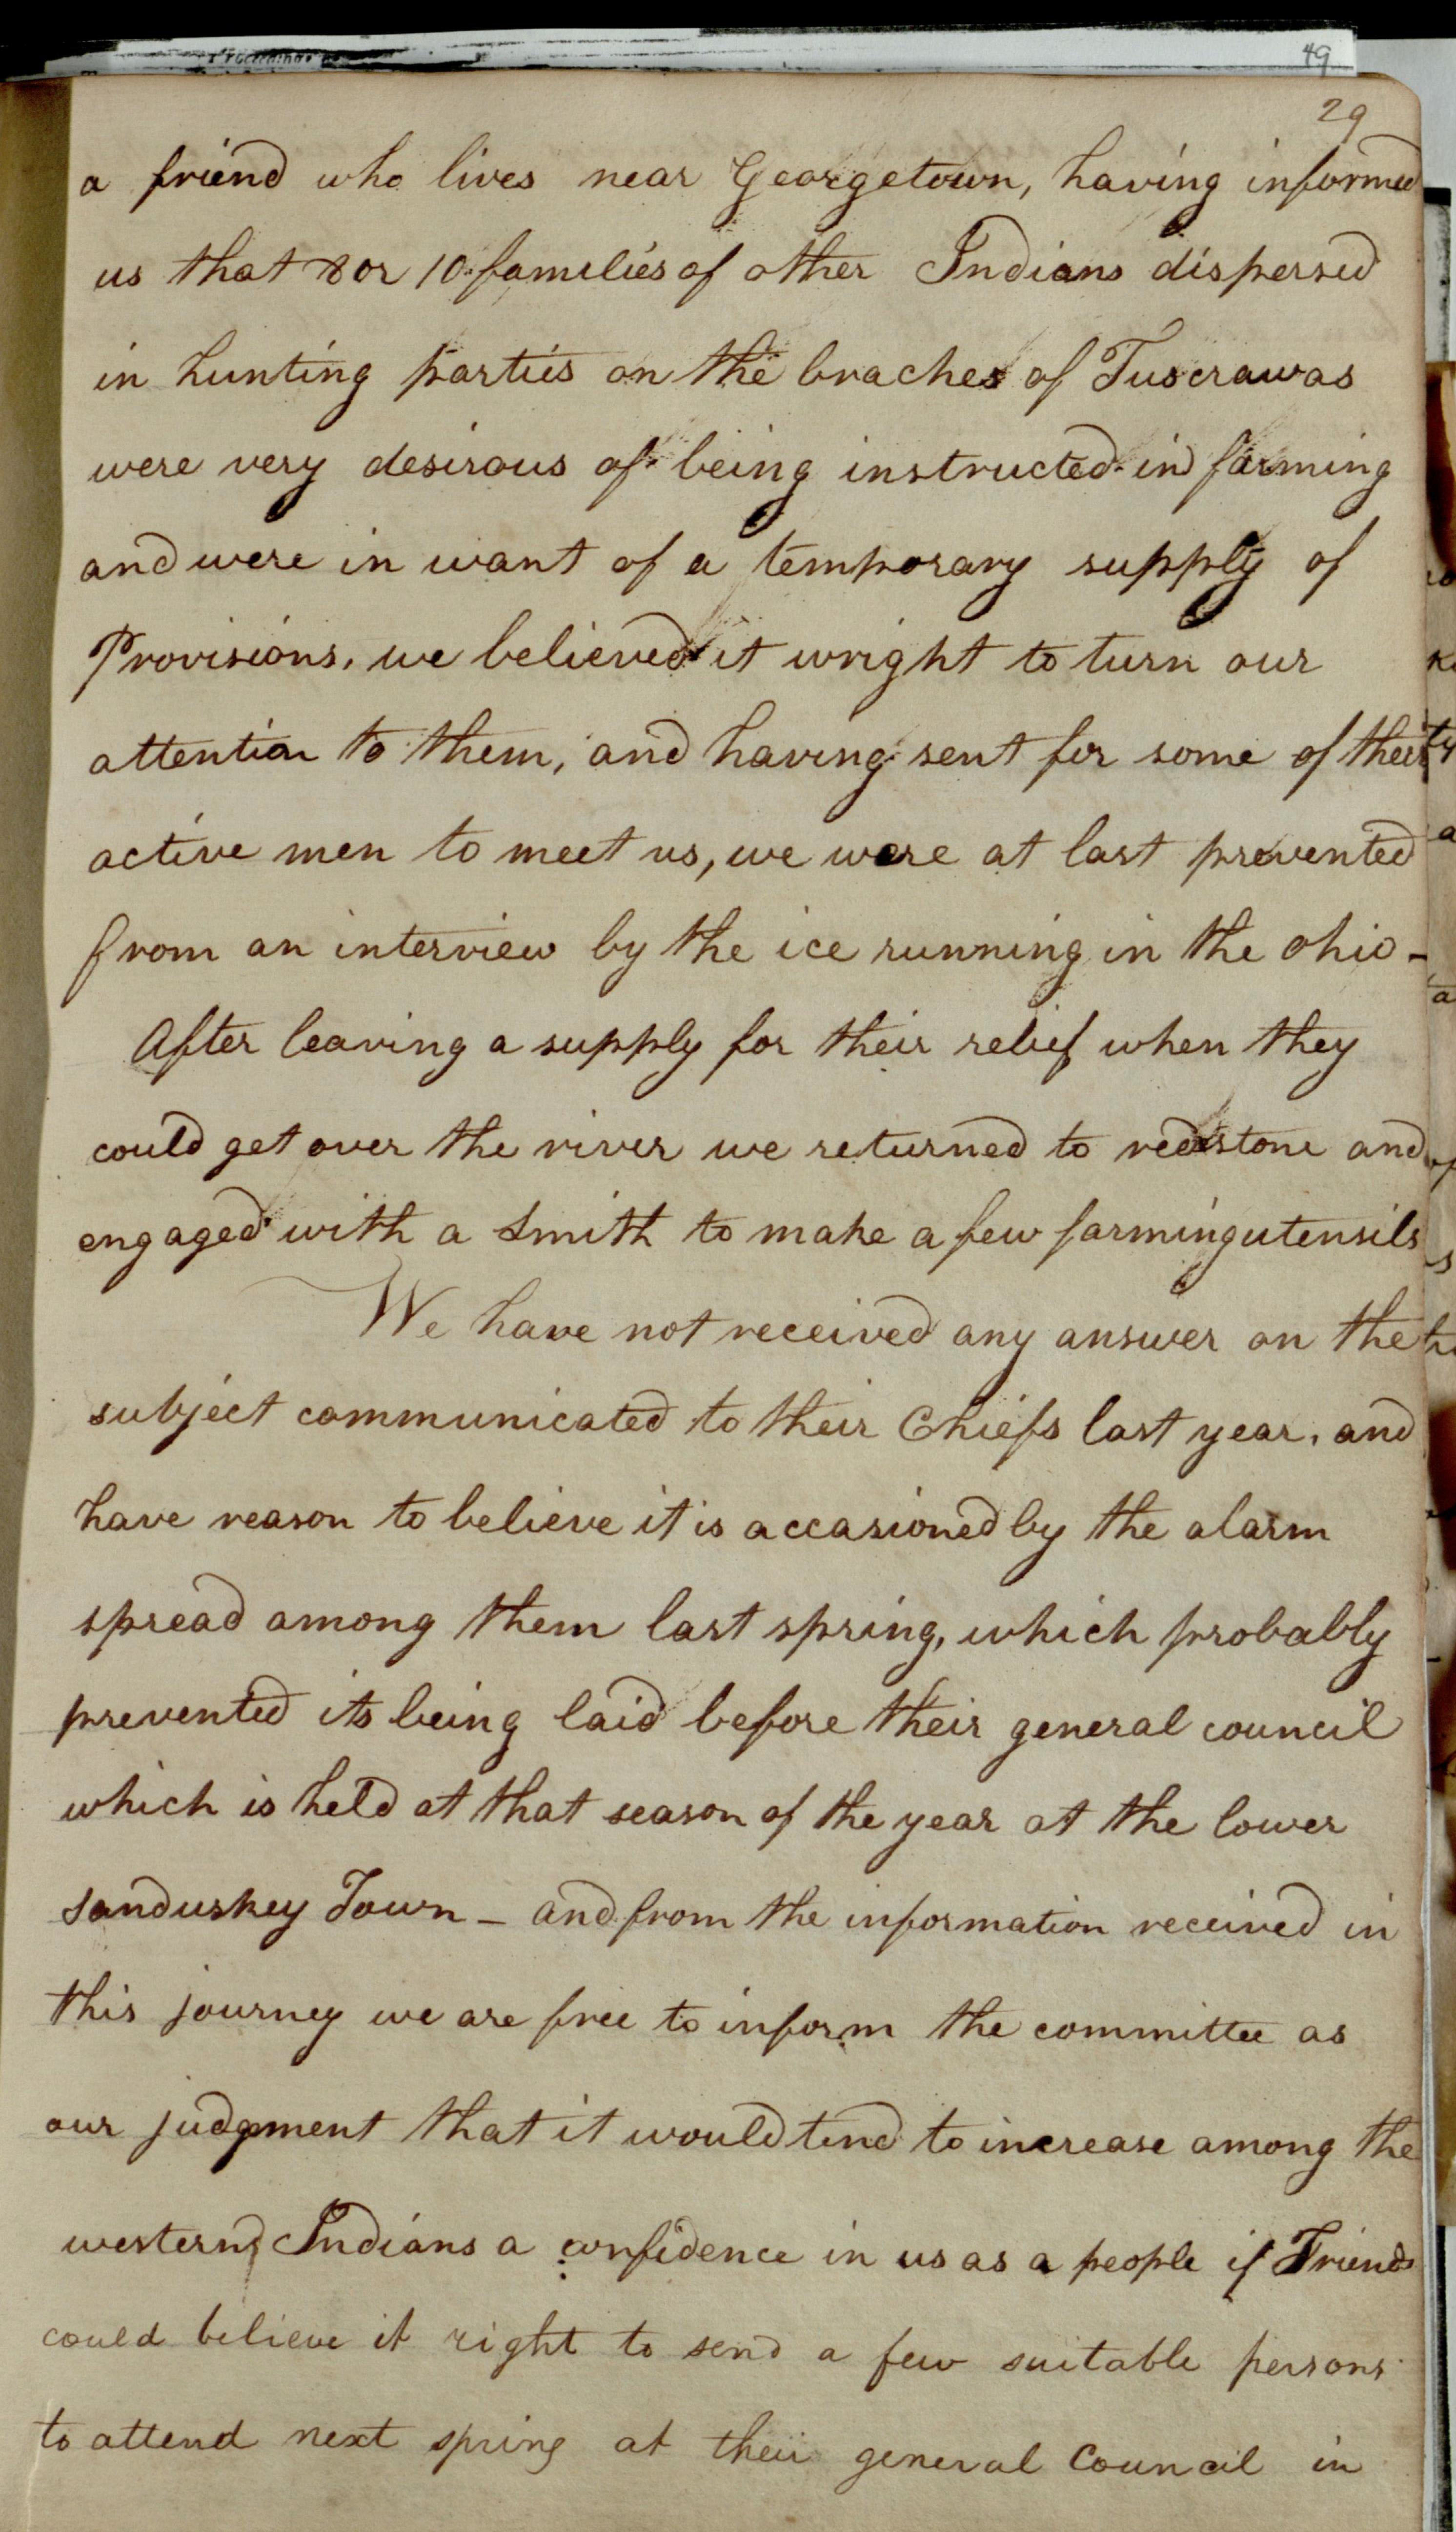 49
29
a friend who lives near Georgetown, having informed
us that 8 or 10 families of other Indians dispersed
in hunting parties on the braches of Tuscrawas
were very desirous of being instructed in farming
and were in want of a temporary supply of
Provisions, we believed it wright to turn our
attention to them, and having sent for some of their
active men to meet us, we were at last prevented
from an interview by the ice running in the ohio –
After leaving a supply for their relief when they
could get over the river we returned to redstone and
engaged with a Smith to make a few farming utensils
We have not received any answer on the
subject communicated to their Chiefs last year, and
have reason to believe it is accasioned by the alarm
spread among them last spring, which probably
prevented its being laid before their general council
which is held at that season of the year at the lower
Sanduskey Town – and from the information received in
this journey we are free to inform the committee as
our judgment that it would tend to increase among the
western Indians a confidence in us as a people if Friends
could believe it right to send a few suitable persons
to attend next spring at their general Council in